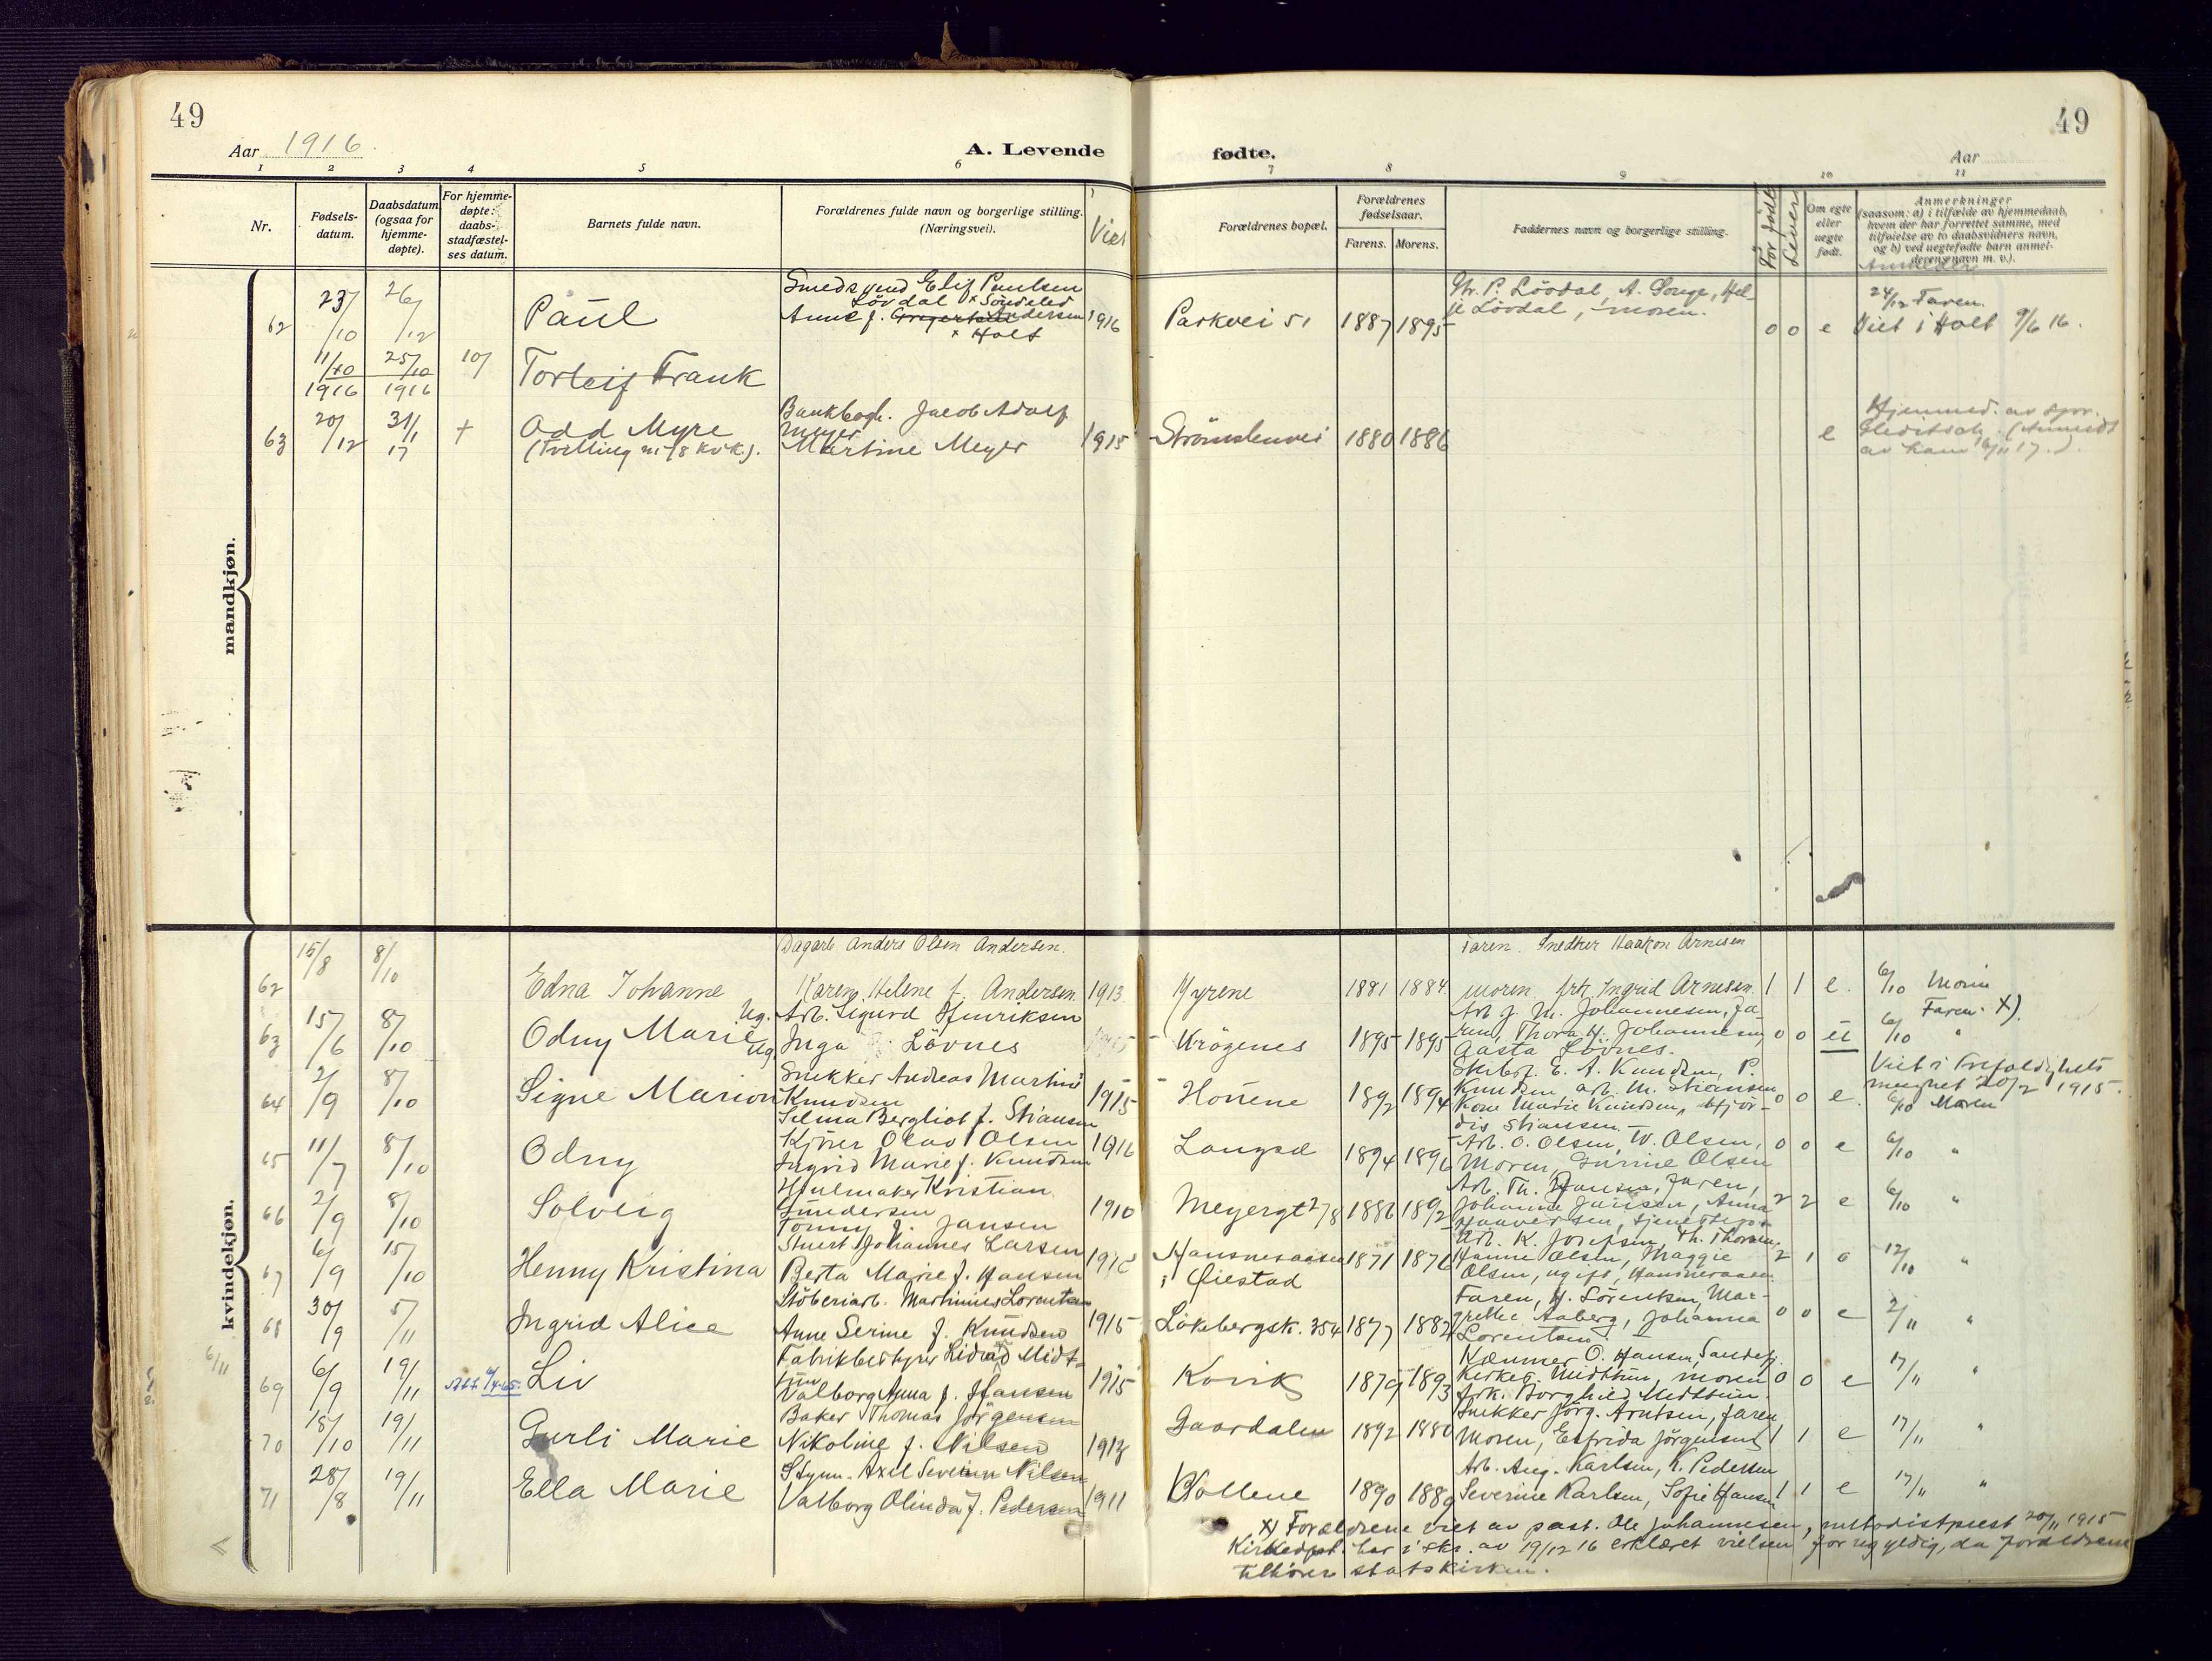 49
49
Aar 1916.
A. Levende
fødte.
Aar
1 2 3 4 5 6 7 8 9 10 11
Nr.
Fødsels-
datum.
Daabsdatum
(ogsaa for
hjemme-
døpte).
For hjemme-
døpte:
daabs-
stadfæstel-
ses datum.
Barnets fulde navn.
Forældrenes fulde navn og borgerlige stilling.
(Næringsvei).
Viet
Forældrenes bopæl.
Forældrenes
fødselsaar.
Farens. Morens.
Faddernes navn og borgerlige stilling.
Før født
Lever
Om egte
eller
uegte
født.
Anmerkninger
(saasom: a) i tilfælde av hjemmedaab,
hvem der har forrettet samme, med
tilføielse av to daabsvidners navn,
og b) ved uegtefødte barn anmel-
derens navn m. v.).
Anmelder
mandkjøn.
62 23/10 26/12 Paul
Smedsvend Elif Paulsen
Lövdal x Söndeled
Anne f. Andersen
x Holt
1916 Parkvei 51 1887 1895
P. Lövdal, A. Songe, Hel-
je Lövdal, moren.
0 0 e
24/12 Faren.
Viet i Holt 9/6 16.
11/10 1916 25/10 1916 10/ Torleif Frank
63 20/12 31/1 17 + Odd Myre
(Tvilling m. 78 kvk.).
Bankbogh. Jacob Adolf
Meyer
Martine Meyer
1915 Strömsbuvei 1880 1886 e
Hjemmed. av spr.
Gleditsch. (Anmeldt
av ham 16/11 17.).
kvindekjøn.
62 15/8 8/10 Edna Johanne
Dagarb. Anders Olsen Andersen.
Karen Helene f. Andersen
1913 Myrene 1881 1884
Faren. Snedker Haakon Arnesen
moren frk Ingrid Arnesen.
1 1 e. 6/10 Moren
63 15/6 8/10 Odny Marie
Ug. Arb. Sigurd Henriksen
Ug. Inga Lövnes
Krögenes 1895 1895
Arb. J. M. Johannesen, fa-
ren, Thora H. Johannesen,
Aasta Lövnes.
0 0 u
Faren. X)
6/10 "
64 2/9 8/10 Signe Marion
Snekker Andreas Martin
Knudsen
Selma Bergliot f. Stiansen
1915 Houene 1892 1894
Skibsf. E. A. Knudsen, P.
Knudsen arb. M. Stiansen
Kone Marie Knudsen, Hjör-
dis Stiansen.
0 0 e.
Viet i Trefoldighets
menghet 20/2 1915.
6/10 Moren
65 11/7 8/10 Odny
Kjörer Olav Olsen
Ingrid Marie f. Knudsen
1916 Langsæ 1894 1896
Arb. O. Olsen, W. Olsen,
Moren, Gurine Olsen
0 0 e 6/10 "
66 2/9 8/10 Solveig
Hjulmaker Kristian
Gundersen
Tomny f. Jansen
1910 Meyergt 27/8 1886 1892
Arb. Th. Hansen, faren,
Johanne Jansen, Anna
Haaversen, tjenestep.
2 2 e 6/10 "
67 6/9 15/10 Henny Kristina
Stuert Johannes Larsen
Berta Marie f. Hansen
Hansnesaasen
i Öiestad
1871 1876
Arb. K. Josefsen, Th. Thorsen,
Hanne Olsen, Maggie
Olsen, ugift, Hansnesaasen.
2 1 e 12/10 "
68 30/9 5/11 Ingrid Alice
Stöberiarb. Martinius Lorentsen
Anne Serine f. Knudsen
1915 Lökebergsk. 354 1877 1882
Faren, H. Sörentsen, Mar-
grethe Aaberg, Johanna
Lorentsen.
0 0 e 2/11 "
6/11
69 6/9 19/11 Att. 6/4-65. Liv
Fabrikbestyrer Lidvad Midt-
tun
Valborg Anna f. Hansen
1915 Kvik 1879 1893
Kæmner O. Hansen, Sandefj.
Kirkeg. Midttun, moren
Frk. Borghild Midttun.
0 0 e 17/11 "
70 18/10 19/11 Gurli Marie
Baker Thomas Jörgensen
Nikoline f. Nilsen
1913 Gaardalen 1892 1880
Snekker Jörg. Arntsen, faren
Moren, Esfrida Jörgensen
1 1 e 17/11 "
71 28/8 19/11 Ella Marie
Styrm. Axel Severin Nilsen
Valborg Olinda f. Pedersen
1911 Kollene 1890 1889
Arb. Aug. Karlsen, K. Pedersen
Severine Karlsen, Sofie Hansen
1 1 e 17/11 "
X) Forældrene viet av past. Ole Johannesen, metodistprest 20/11 1915
Kirkedept. har i skr. av 19/12 16 erklæret vielsen for ugyldig, da forældrene
tilhörer statskirken.